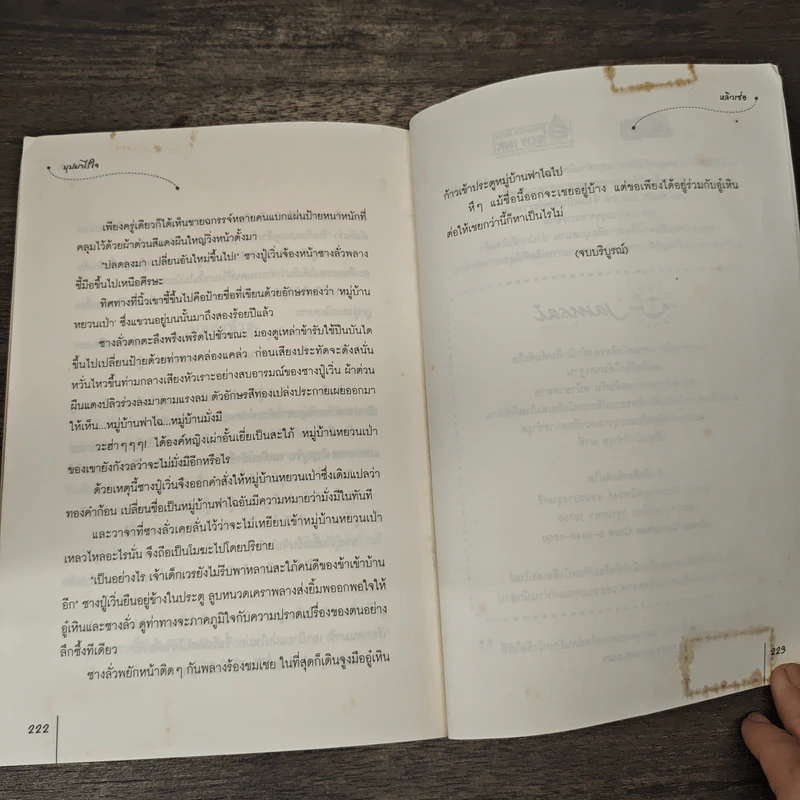 บุปผาไร้ใจ
เพียงครู่เดียวก็ได้เห็นชายฉกรรจ์หลายคนแบกแผ่นป้ายหนาหนักที่
คลุมไว้ด้วยผ้าต่วนสีแดงผืนใหญ่วิ่งหน้าตั้งมา
"ปลดลงมา เปลี่ยนอันใหม่ขึ้นไป!" ซางปู่เวิ่นจ้องหน้าซางลั่วพลาง
ชี้มือขึ้นไปเหนือศีรษะ
ทิศทางที่นิ้วเขาชี้ขึ้นไปคือป้ายชื่อที่เขียนด้วยอักษรทองว่า 'หมู่บ้าน
หยวนเป่า' ซึ่งแขวนอยู่บนนั้นมาถึงสองร้อยปีแล้ว
ซางลั่วตกตะลึงพรึงเพริดไปชั่วขณะ มองดูเหล่าข้ารับใช้ปีนบันได
ขึ้นไปเปลี่ยนป้ายด้วยท่าทางคล่องแคล่ว ก่อนเสียงประทัดจะดังสนั่น
หวั่นไหวขึ้นท่ามกลางเสียงหัวเราะอย่างสบอารมณ์ของซางปู่เวิ่น ผ้าต่วน
ผืนแดงปลิวร่วงลงมาตามแรงลม ตัวอักษรสีทองเปล่งประกายเผยออกมา
ให้เห็น...หมู่บ้านฟาไฉ...หมู่บ้านมั่งมี
วะฮ่าๆๆๆ! ได้องค์หญิงเผ่าอั้นเยี่ยเป็นสะใภ้ หมู่บ้านหยวนเป่า
ของเขายังกังวลว่าจะไม่มั่งมีอีกหรือไร
ด้วยเหตุนี้ซางปู่เวิ่นจึงออกคำสั่งให้หมู่บ้านหยวนเป่าซึ่งเดิมแปลว่า
ทองคำก้อน เปลี่ยนชื่อเป็นหมู่บ้านฟาไฉอันมีความหมายว่ามั่งมีในทันที
และวาจาที่ซางลั่วเคยลั่นไว้ว่าจะไม่เหยียบเข้าหมู่บ้านหยวนเป่า
เหลวไหลอะไรนั่น จึงถือเป็นโมฆะไปโดยปริยาย
"เป็นอย่างไร เจ้าเด็กเวรยังไม่รีบพาหลานสะใภ้คนดีของข้าเข้าบ้าน
อีก" ซางปู่เวิ่นยืนอยู่ข้างในประตู ลูบหนวดเคราพลางส่งยิ้มพออกพอใจให้
อู๋เหินและซางลั่ว ดูท่าทางจะภาคภูมิใจกับความปราดเปรื่องของตนอย่าง
ลึกซึ้งทีเดียว
ซางลั่วพยักหน้าติดๆ กันพลางร้องชมเชย ในที่สุดก็เดินจูงมืออู๋เหิน
222
หลิวเซ่อ
ก้าวเข้าประตูหมู่บ้านฟาไฉไป
หึๆ แม้ชื่อนี้ออกจะเชยอยู่บ้าง แต่ขอเพียงได้อยู่ร่วมกับอู๋เหิน
ต่อให้เชยกว่านี้ก็หาเป็นไรไม่
(จบบริบูรณ์)
223